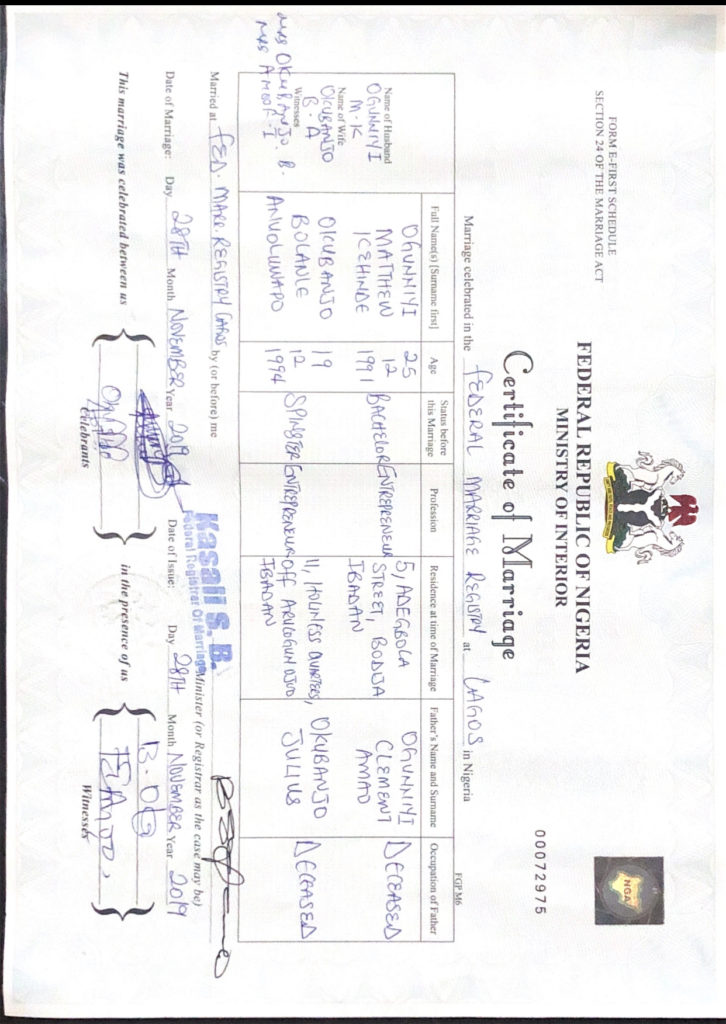 FORM E-FIRST SCHEDULE
SECTION 24 OF THE MARRIAGE ACT
FEDERAL REPUBLIC OF NIGERIA
MINISTRY OF INTERIOR
NGA
00072975
Certificate of Marriage
FGP M6
Marriage celebrated in the FEDERAL MARRIAGE REGISTRY at LAGOS in Nigeria
Name of Husband
OGUNNIYI
M.K
Name of Wife
OKUBANJO
B.A
Witnesses
MRS OKUBANJO B.
Full Name(s) [Surname first]
OGUNNIYI
MATTHEW
KEHINDE
OKUBANJO
BOLANLE
Age
25
12
1991
19
12
1994
Status before
this Marriage
BACHELOR
SPINSTER
Profession
ENTREPRENEUR
ENTREPRENEUR
Residence at time of Marriage
5, ADEGBOLA
STREET, BODIJA
IBADAN
11, HOLINESS QUARTERS,
OFF ARULOGUN OJOO
IBADAN
Father's Name and Surname
OGUNNIYI
CLEMENT
OKUBANJO
JULIUS
Occupation of Father
DECEASED
DECEASED
Married at FED. MARR. REGISTRY LAGOS by (or before) me
Kasali S. B.
Federal Registrar Of Marriage
Minister (or Registrar as the case may be)
Date of Marriage: Day 28TH Month NOVEMBER Year 2019 Date of Issue: Day 28TH Month NOVEMBER Year 2019
This marriage was celebrated between us
Celebrants
in the presence of us
Witnesses